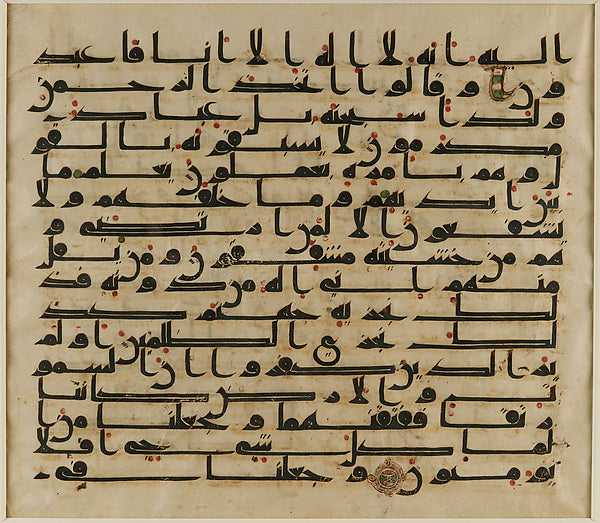 اليه انه لا اله الا انا فاعبد
ون وقالوا اتخذ الرحمن
ولدا سبحنه بل عباد
مكرمون لا يسبقونه بالقو
ل وهم بامره يعملون يعلم ما
بين ايديهم وما خلفهم ولا
يشفعون الا لمن ارتضى و
هم من خشيته مشفقون ومن يقل
منهم اني اله من دونه فذ
لك نجزيه جهنم كذ
لك نجزي الظلمين اولم
ير الذين كفروا ان السمو
ت والارض كانتا
رتقا ففتقنهما وجعلنا من ا
لما كل شي حي افلا
يومنون وجعلنا في